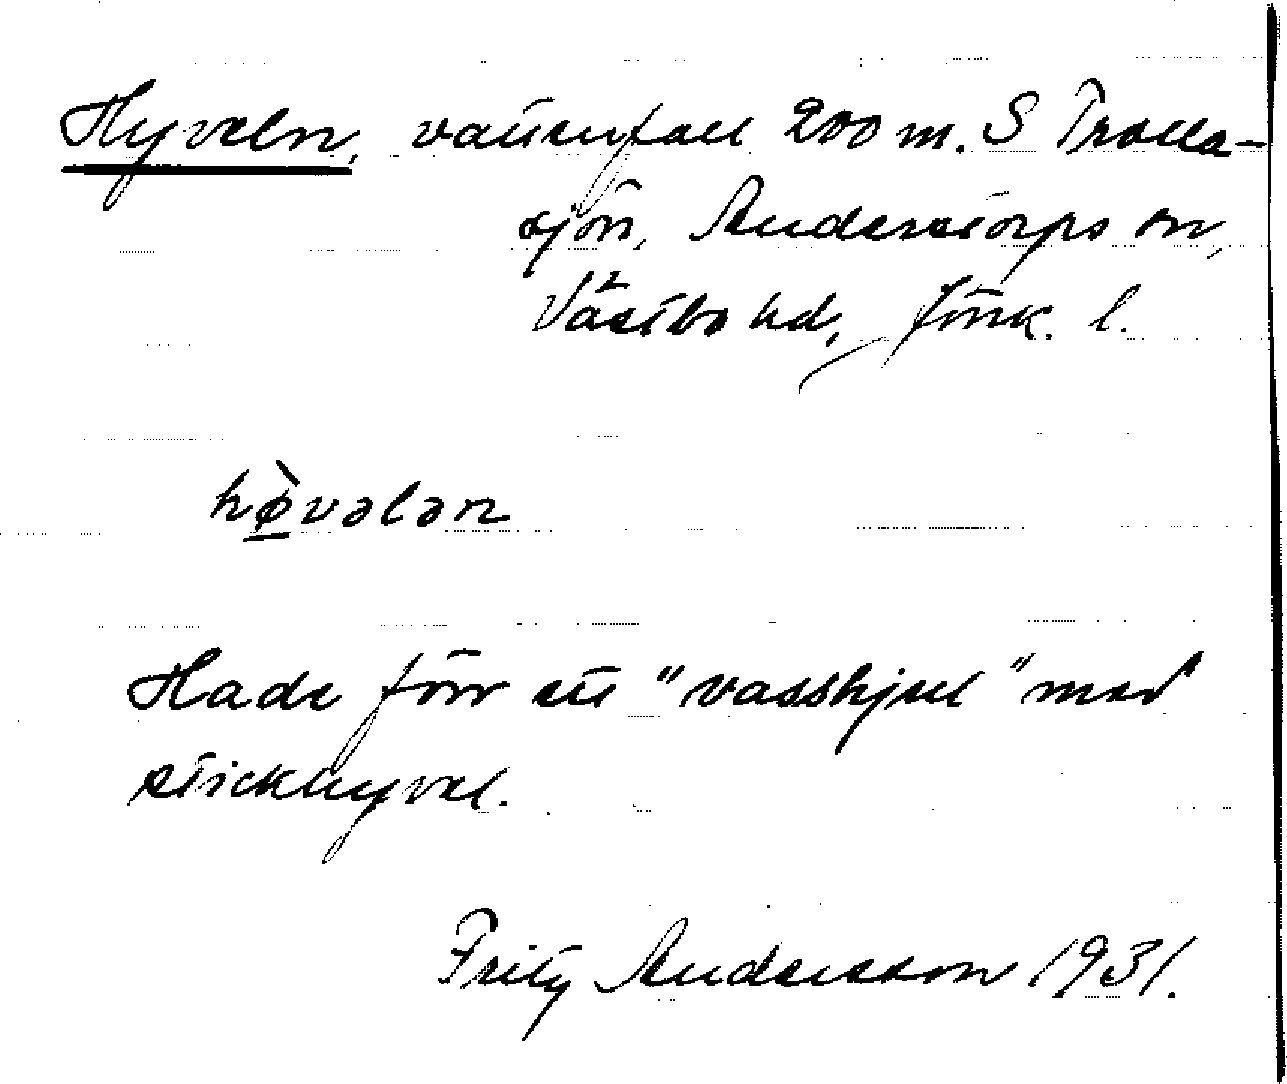 Hyveln, vattenfall 200 m. S Trolla-
sjön, Anderstorps sn,
Västbo hd, Jönk. l.
hø̀vələn
Hade förr ett "vasshjul" med
stickhyvel.
Fritz Andersson 1931.